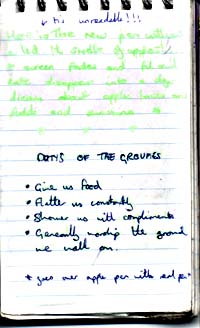 it's unreadable!!!
Here is the new pen with
a lid. It smells of apple!
screen fades and
into a day
dream about apple trees
fields and sunshine
DUTYS OF THE GROUPIES
• Give us Food
• Flatter us constantly
• Shower us with compliments
• Generally worship the ground
we walk on.
* goes over apple pen with red pen *